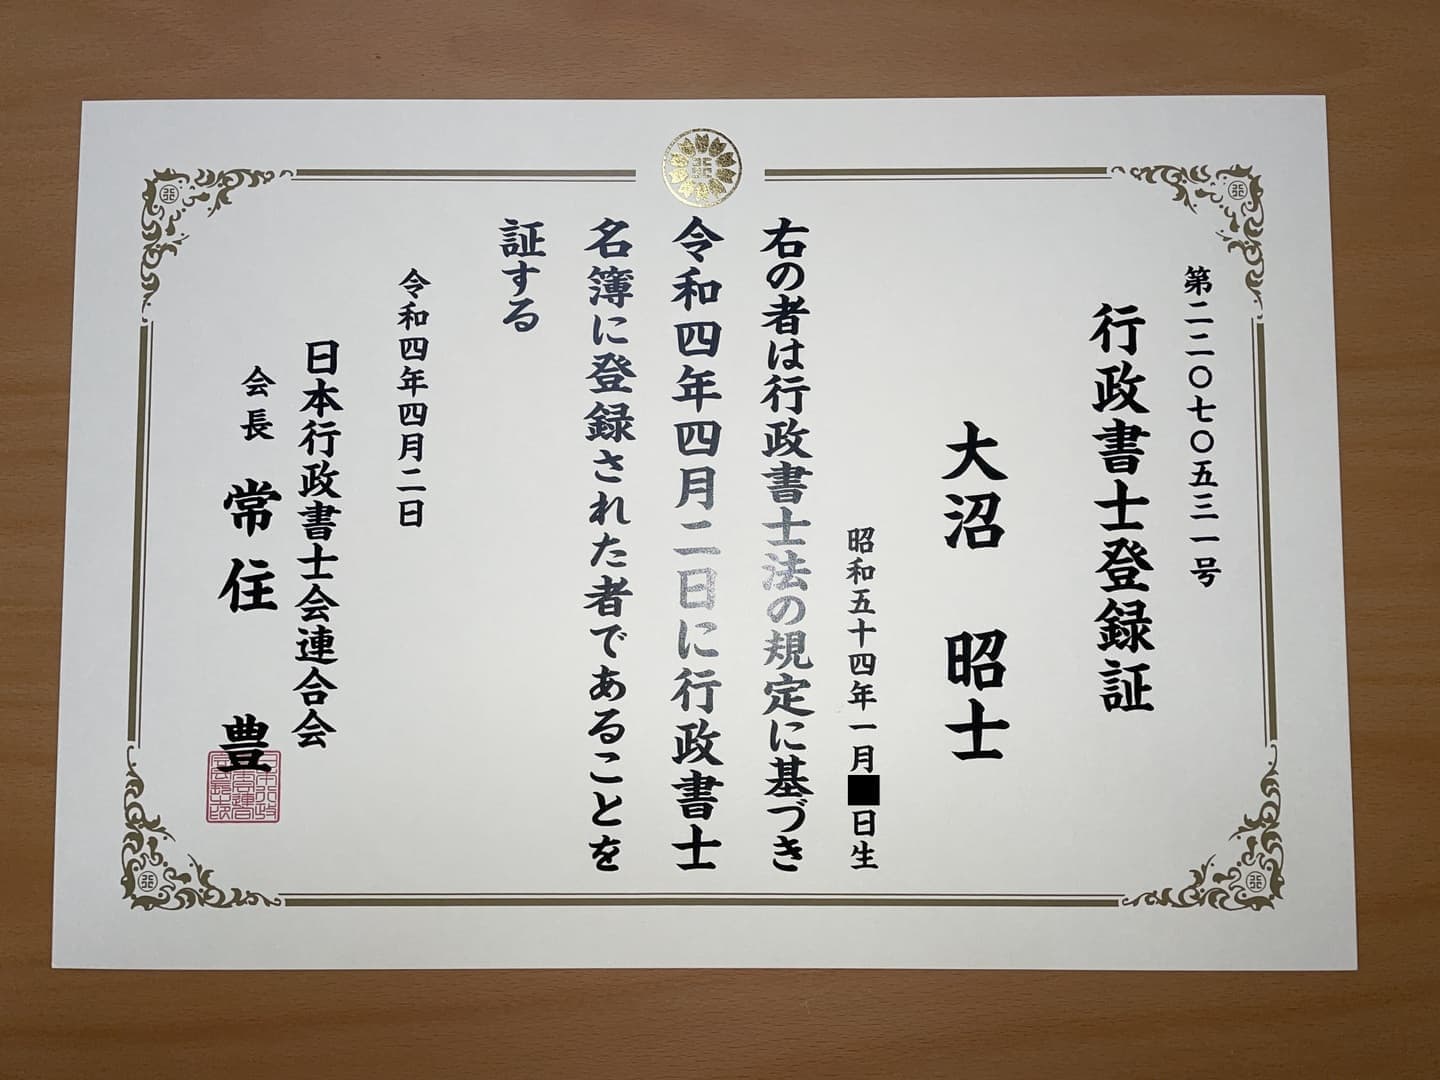 第二二〇七〇五三一号
行政書士登録証
大沼 昭士
昭和五十四年一月 日生
右の者は行政書士法の規定に基づき
令和四年四月二日に行政書士
名簿に登録された者であることを
証する
令和四年四月二日
日本行政書士会連合会
会長 常住 豊